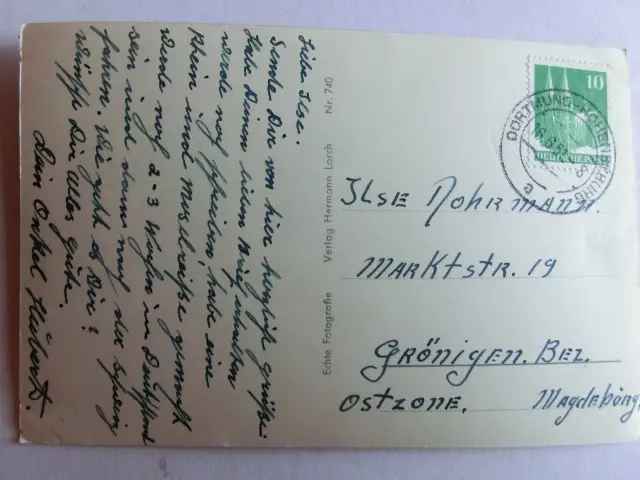 Liebe Ilse.
Sende Dir von hier herzliche Grüße.
Habe Deinen lieben Brief erhalten
werde noch schreiben, habe eine
Rhein und Moselreise gemacht
werde noch 2-3 Wochen in Deutschland
sein und dann nach der Schweiz
fahren. Wie geht es Dir?
Wünsche Dir Alles gute.
Dein Onkel Hubert.
Echte Fotografie Verlag Hermann Lorch Nr. 740
10
DEUTSCHE POST
DORTMUND-HOHENSYBURG
Ilse Rohrmann.
Marktstr. 19
Grönigen. Bez.
Ostzone. Magdeburg.